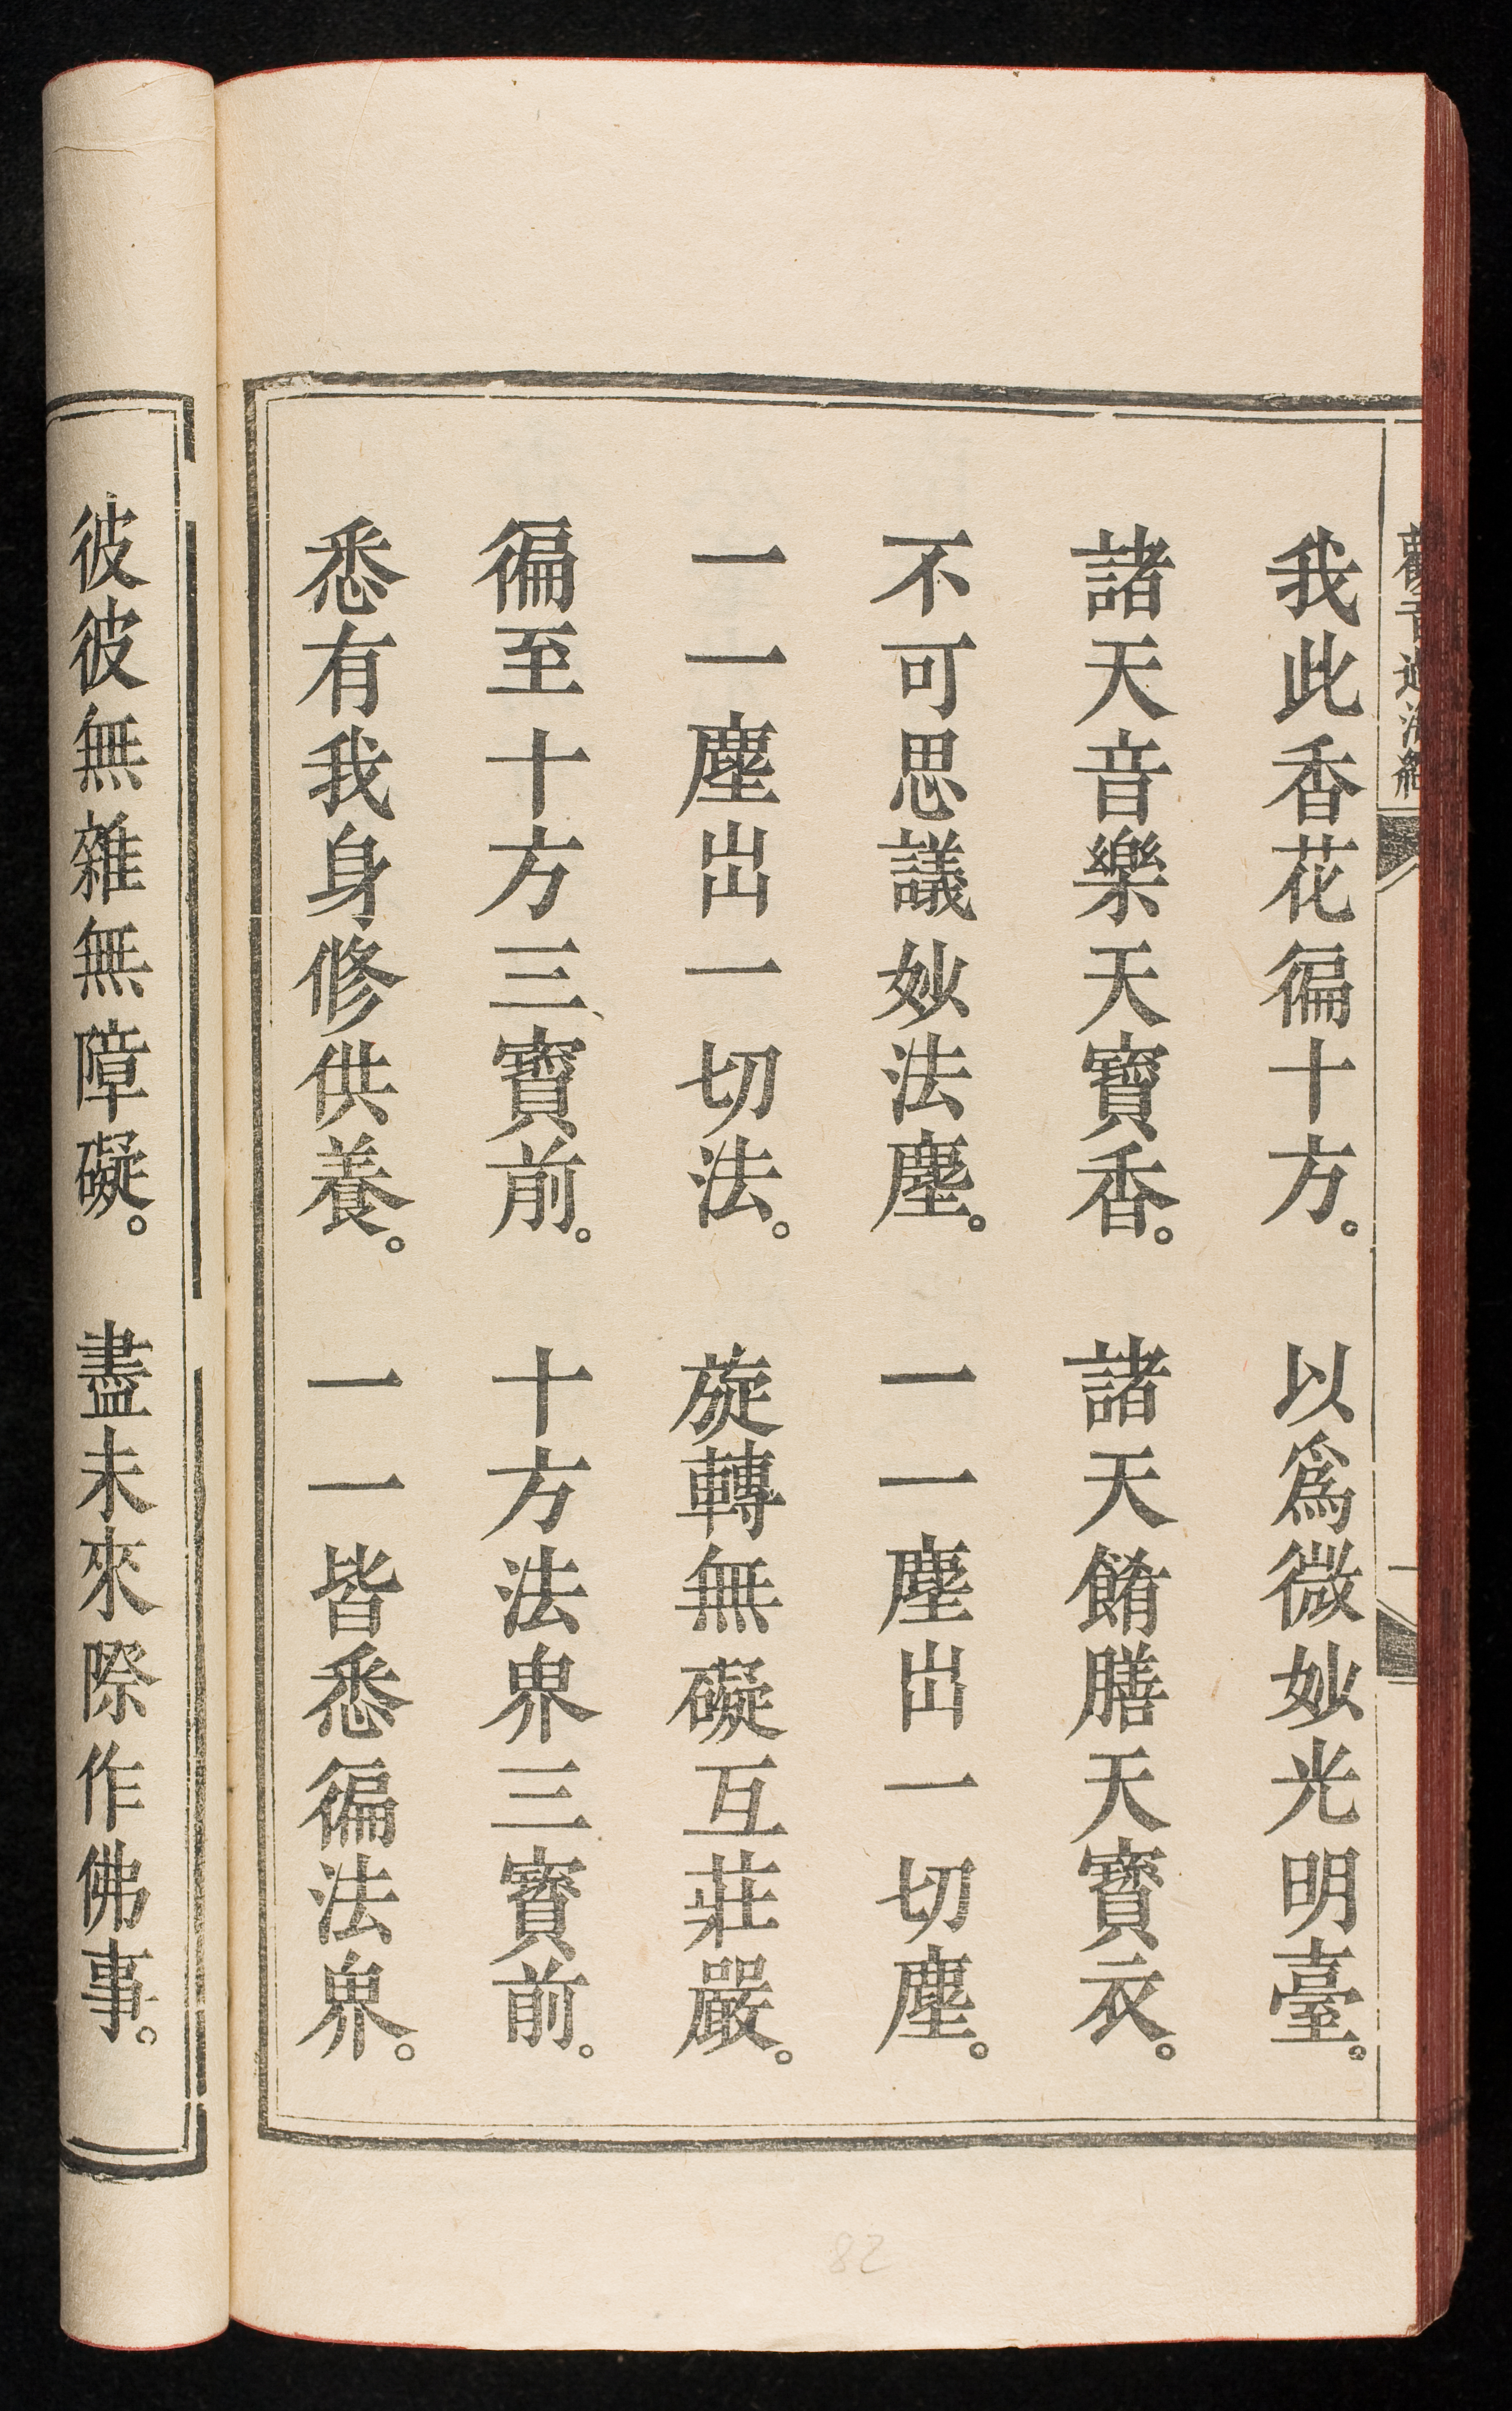 我此香花徧十方。以爲微妙光明臺。
諸天音樂天寶香。諸天餚膳天寶衣。
不可思議妙法塵。一一塵出一切塵。
一一塵出一切法。旋轉無礙互莊嚴。
徧至十方三寶前。十方法界三寶前。
悉有我身修供養。一一皆悉徧法界。
彼彼無雜無障礙。盡未來際作佛事。
82